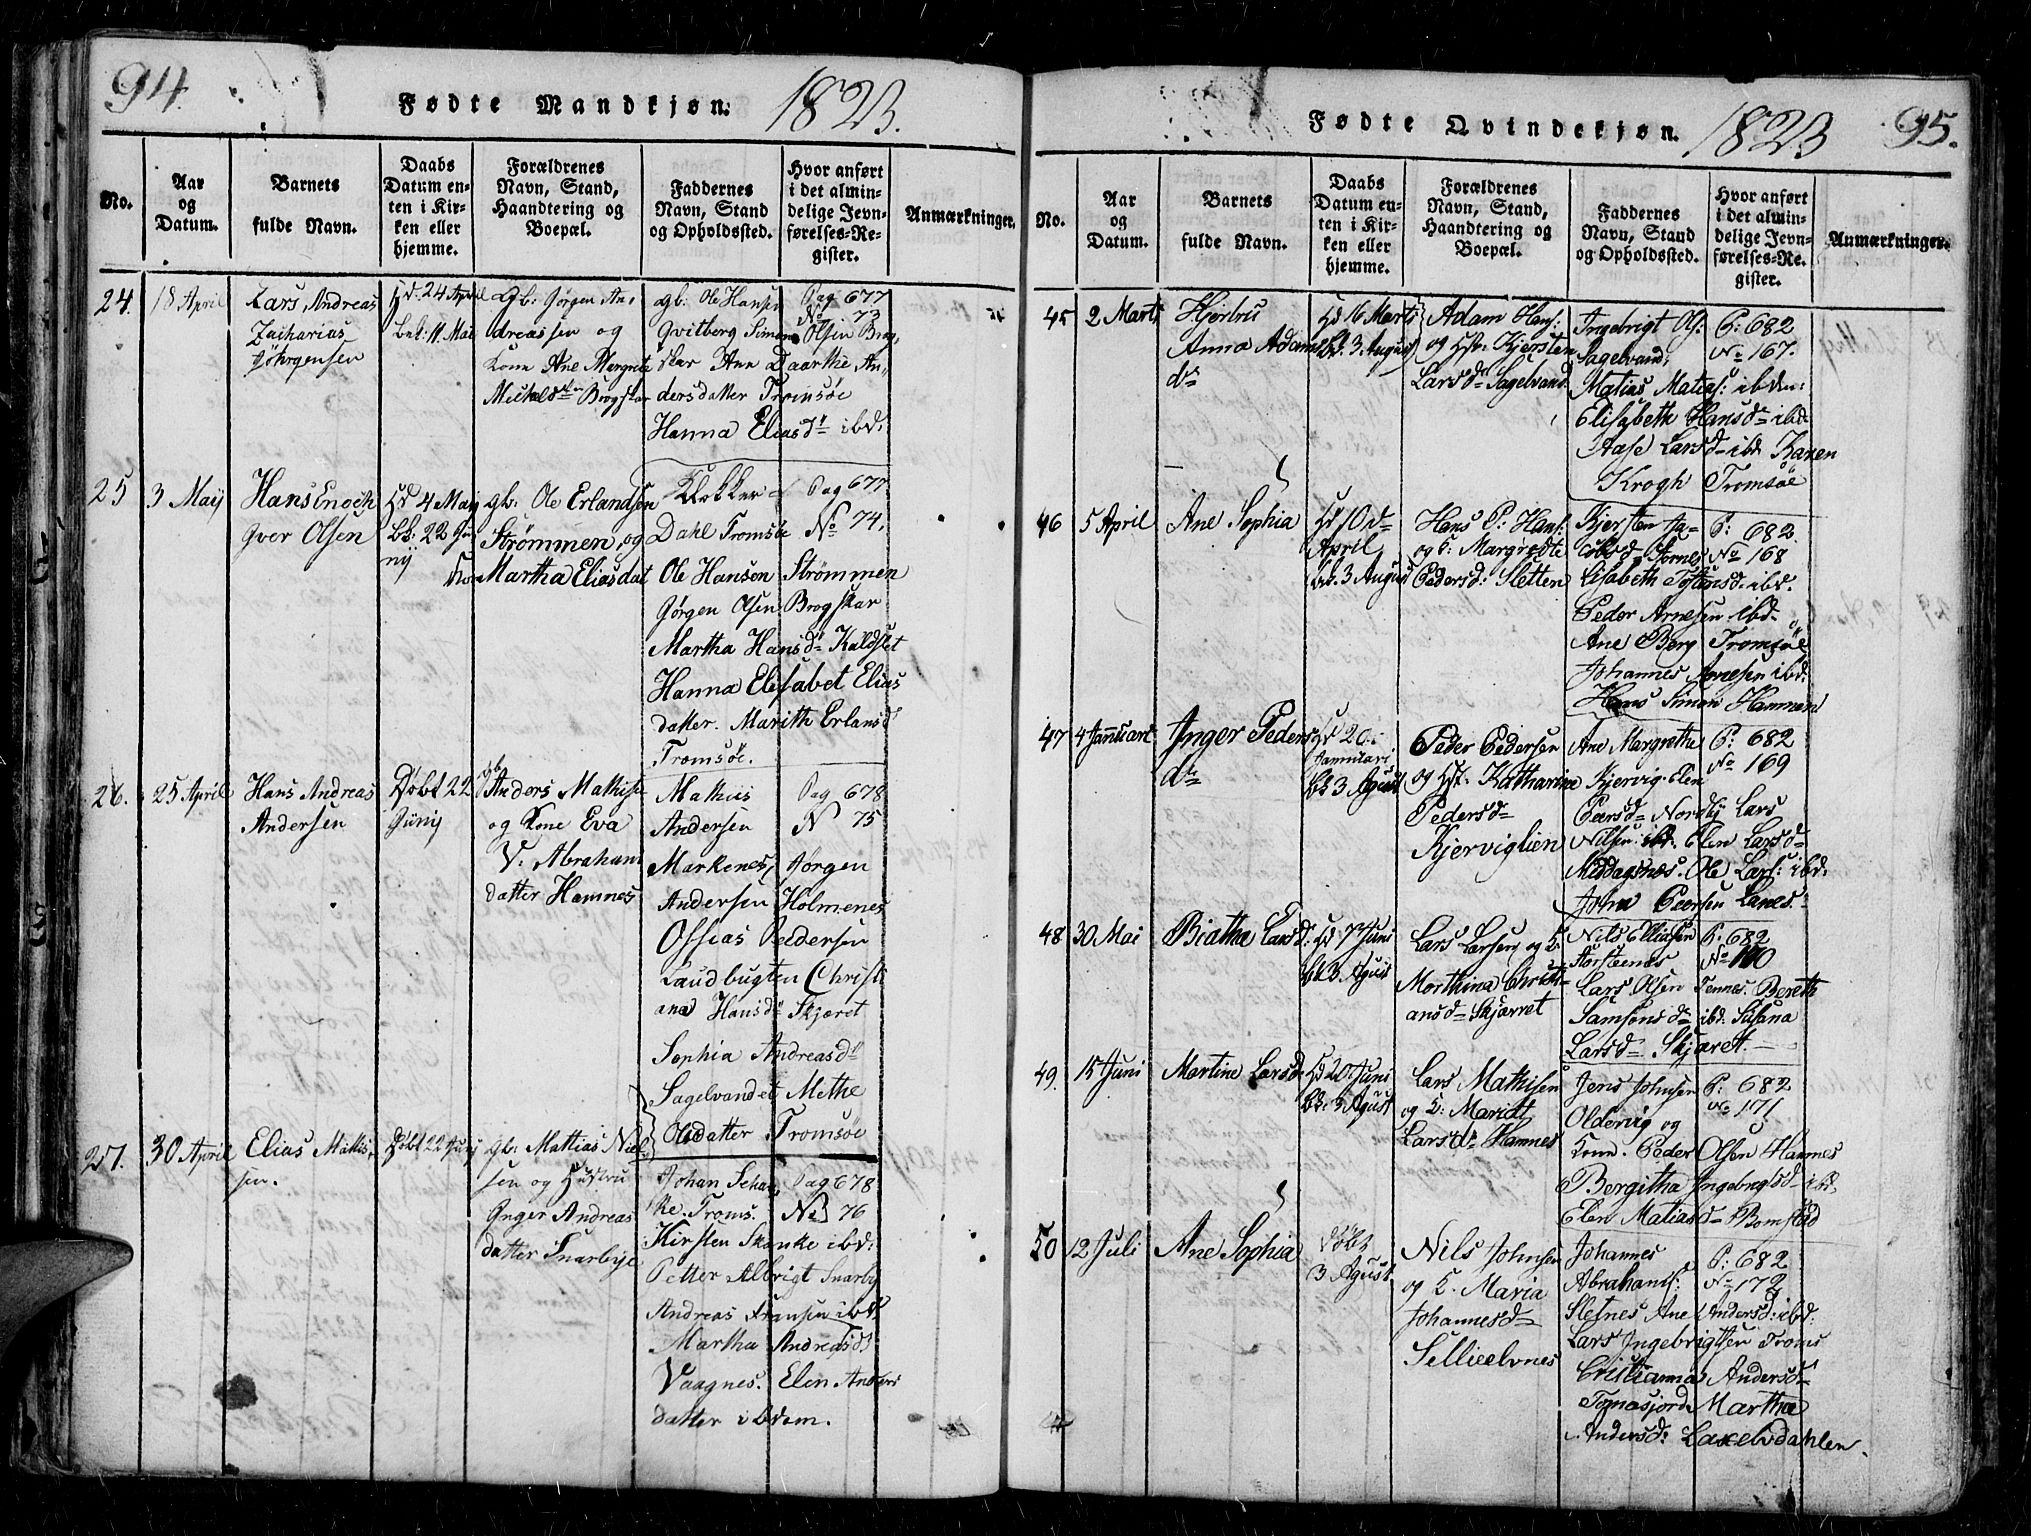 94.
Fødte Mandkjøn. 1823.
No.
Aar og Datum.
Barnets fulde Navn.
Daabs Datum enten i Kirken eller hjemme.
Forældrenes Navn, Stand, Haandtering og Boepæl.
Faddernes Navn, Stand og Opholdssted.
Hvor anført i det almindelige Jevnførelses-Register.
Anmærkninger.
24.
18 April
Lars Andreas
Zacharias
Jöhrgensen
Hd: 24 April
bek: 11 Mai
Gb: Jørgen An,
dreassen og
Kone Ane Margret
Micheldtr Brogskar
gb: Ole Hansen
Qvitberg Simon Olsen Brog,
skar Ann Daarthe An,
dersdatter Tromsøe
Hanna Eliasdr ibd:
Pag 677
No 73
25
3 Maij
Hans Enoch
Iver Olsen
Hd 4 Maij
bk: 22 Ju
nij
gb: Ole Erlandsen
Strømmen og
Kone Martha Eliasdat
Klokker
Dahl Tromsøe
Ole Hansen Strømmen
Jørgen Olsen Brogskar
Martha Hansdr Kaldslet
Hanna Elisabet Elias
datter. Marith Erlansd
Tromsøe.
Pag 677
No 74.
26.
25 April
Hans Andreas
Andersen
Döbt 22
Junij
gb Anders Mathis
og Kone Eva
V. Abraham
datter Hamnes
Mathis
Andersen
Markenes, Jörgen
Andersen Holmenes
Ossias Pedersen
Laudbugten Christi
ana Hansdr Skjæret
Sophia Andreasdr
Sagelvandet Methe
Olsdatter Tromsöe
Pag 678
N 75
27.
30 April
Elias Mathis,
sen.
Döbt 22 Junij
gb: Mathias Niel
sen og Hustru
Inger Andreas
datter Snarbye
Johan Schan
ke. Troms.
Kirsten Skanke ibd:
Petter Albrigt Snarby
Andreas Fransen ibd:
Martha Andreasd
Vaagnes. Elen Anders
datter ibdem.
Pag 678
No 76
95.
Fødte Qvindekjøn. 1823
No.
Aar og Datum.
Barnets fulde Navn.
Daabs Datum enten i Kirken eller hjemme.
Forældrenes Navn, Stand, Haandtering og Boepæl.
Faddernes Navn, Stand og Opholdssted.
Hvor anført i det almindelige Jevnførelses-Register.
Anmærkninger.
45
2 Marts
Anna Adams
dr
Hd 16 Marts
bk. 3 August
Adam Hans:
og Hstr Kjersten
Larsdr Sagelvand
Ingebrigt Ols:
Sagelvand;
Matias Matias: ibdm:
Elisabeth Hansdr ibd:
Aase Larsd ibd: Karen
Krogh Tromsöe
P: 682
No 167.
46
5 April
Ane Sophia
Hd 10d
April
bk. 3 August
Hans P: Hans:
og K: Margrethe
Pedersd: Sletten
Kjersten Ja-
cobsd Sornes
Lisabeth ibd.
Peder Arnesen ibd.
Ane Berg Tromsöe
Johannes Arnesen ibd:
Hans Simon Hammen
P: 682
No 168
47
4 Januari
Inger Peders
dr
Hd 20
Januari
bk 3 Agust
Peder Pedersen
og Hst. Katharine
Pedersd
Kjerviglien
Ane Margretha
Kjervig. Elen
Peersd Nordby Lars
Nilsen ibd. Elen Larsd
Middagsnes. Ole Lars: ibd:
John Peersen Lanes
P: 682
No 169
48
30 Mai
Biatha Larsd:
Hd 7 Juni
bk 3. Agust
Lars Larsen og K.
Morthina Christi
ansd Skjærret
Nils Elliasen
Aarstenes
Lars Olsen Tennes. Bereth
Samsonsdr ibd: Susana
Larsd Skjæret.
P: 682
No 170
49.
15 Juni
Martine Larsd
Hd 20 Juni
bk: 3 Agust
Lars Mathisen
og K: Maridt
Larsdr Hamnes
Jens Johnsen
Oldervig og
Kone. Peder Olsen Hamnes
Bergitha Ingebrigtsd ibd,
Elen Matiasd Bomstad
P: 682
No 171
50
12 Juli
Ane Sophia
Döbt
3 Agust
Nils Johnsen
og K. Maria
Johannesd
Sellieelvnes
Johannes
Abrahams:
Sletnes Ane Andersd: ibd:
Lars Ingebrigtsen Troms
Cristianna Andersd
Tomasjord Martha
Andersd: Laxelvdahlen.
P: 682
No 172